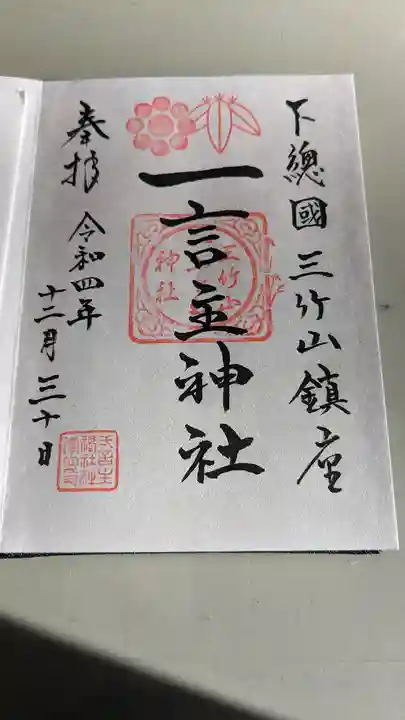 下總國三竹山鎮座
一言主神社
奉拝
令和四年
十二月三十日
三竹山
神社